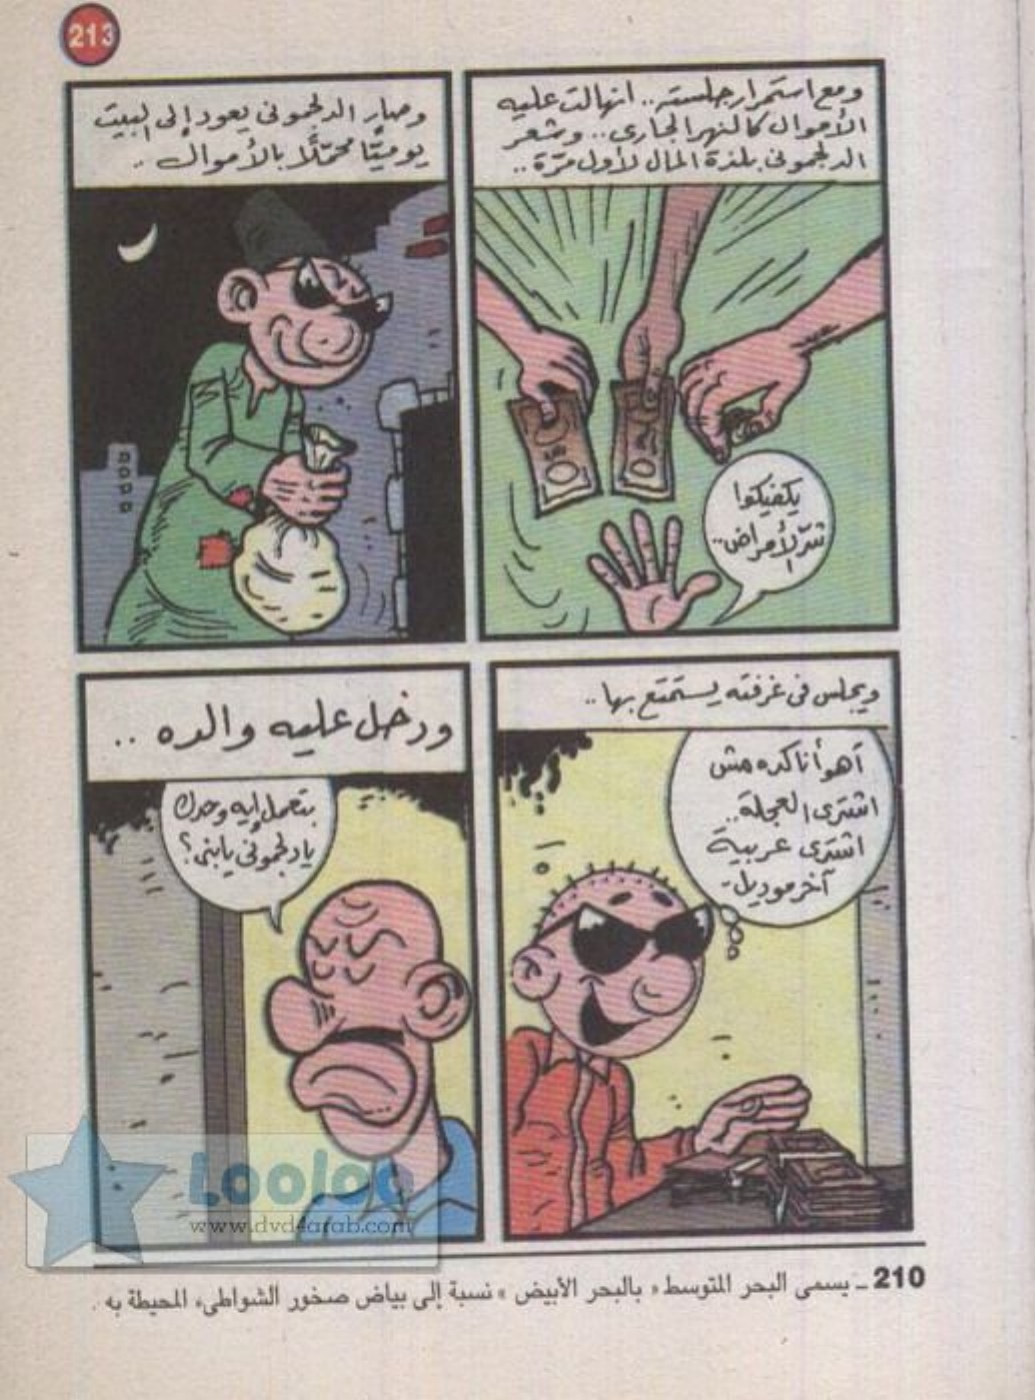 213
ومع استمرار جلسته.. انهالت عليه
الأموال كالنهر الجارى.. وشعر
الدلجمونى بلذة المال لأول مرّة..
يكفيكوا
شرّ الأمراض..
وصار الدلجمونى يعود إلى البيت
يوميًا محمّلًا بالأموال..
ويجلس فى غرفته يستمتع بها..
آهو أنا كده مش
اشترى العجلة..
اشترى عربية
آخر موديل-
ودخل عليه والده..
بتعمل إيه وحدك
يا دلجمونى يا بنى؟
Looloo
www.dvd4arab.com
210 ـ يسمى البحر المتوسط « بالبحر الأبيض » نسبة إلى بياض صخور الشواطىء المحيطة به .